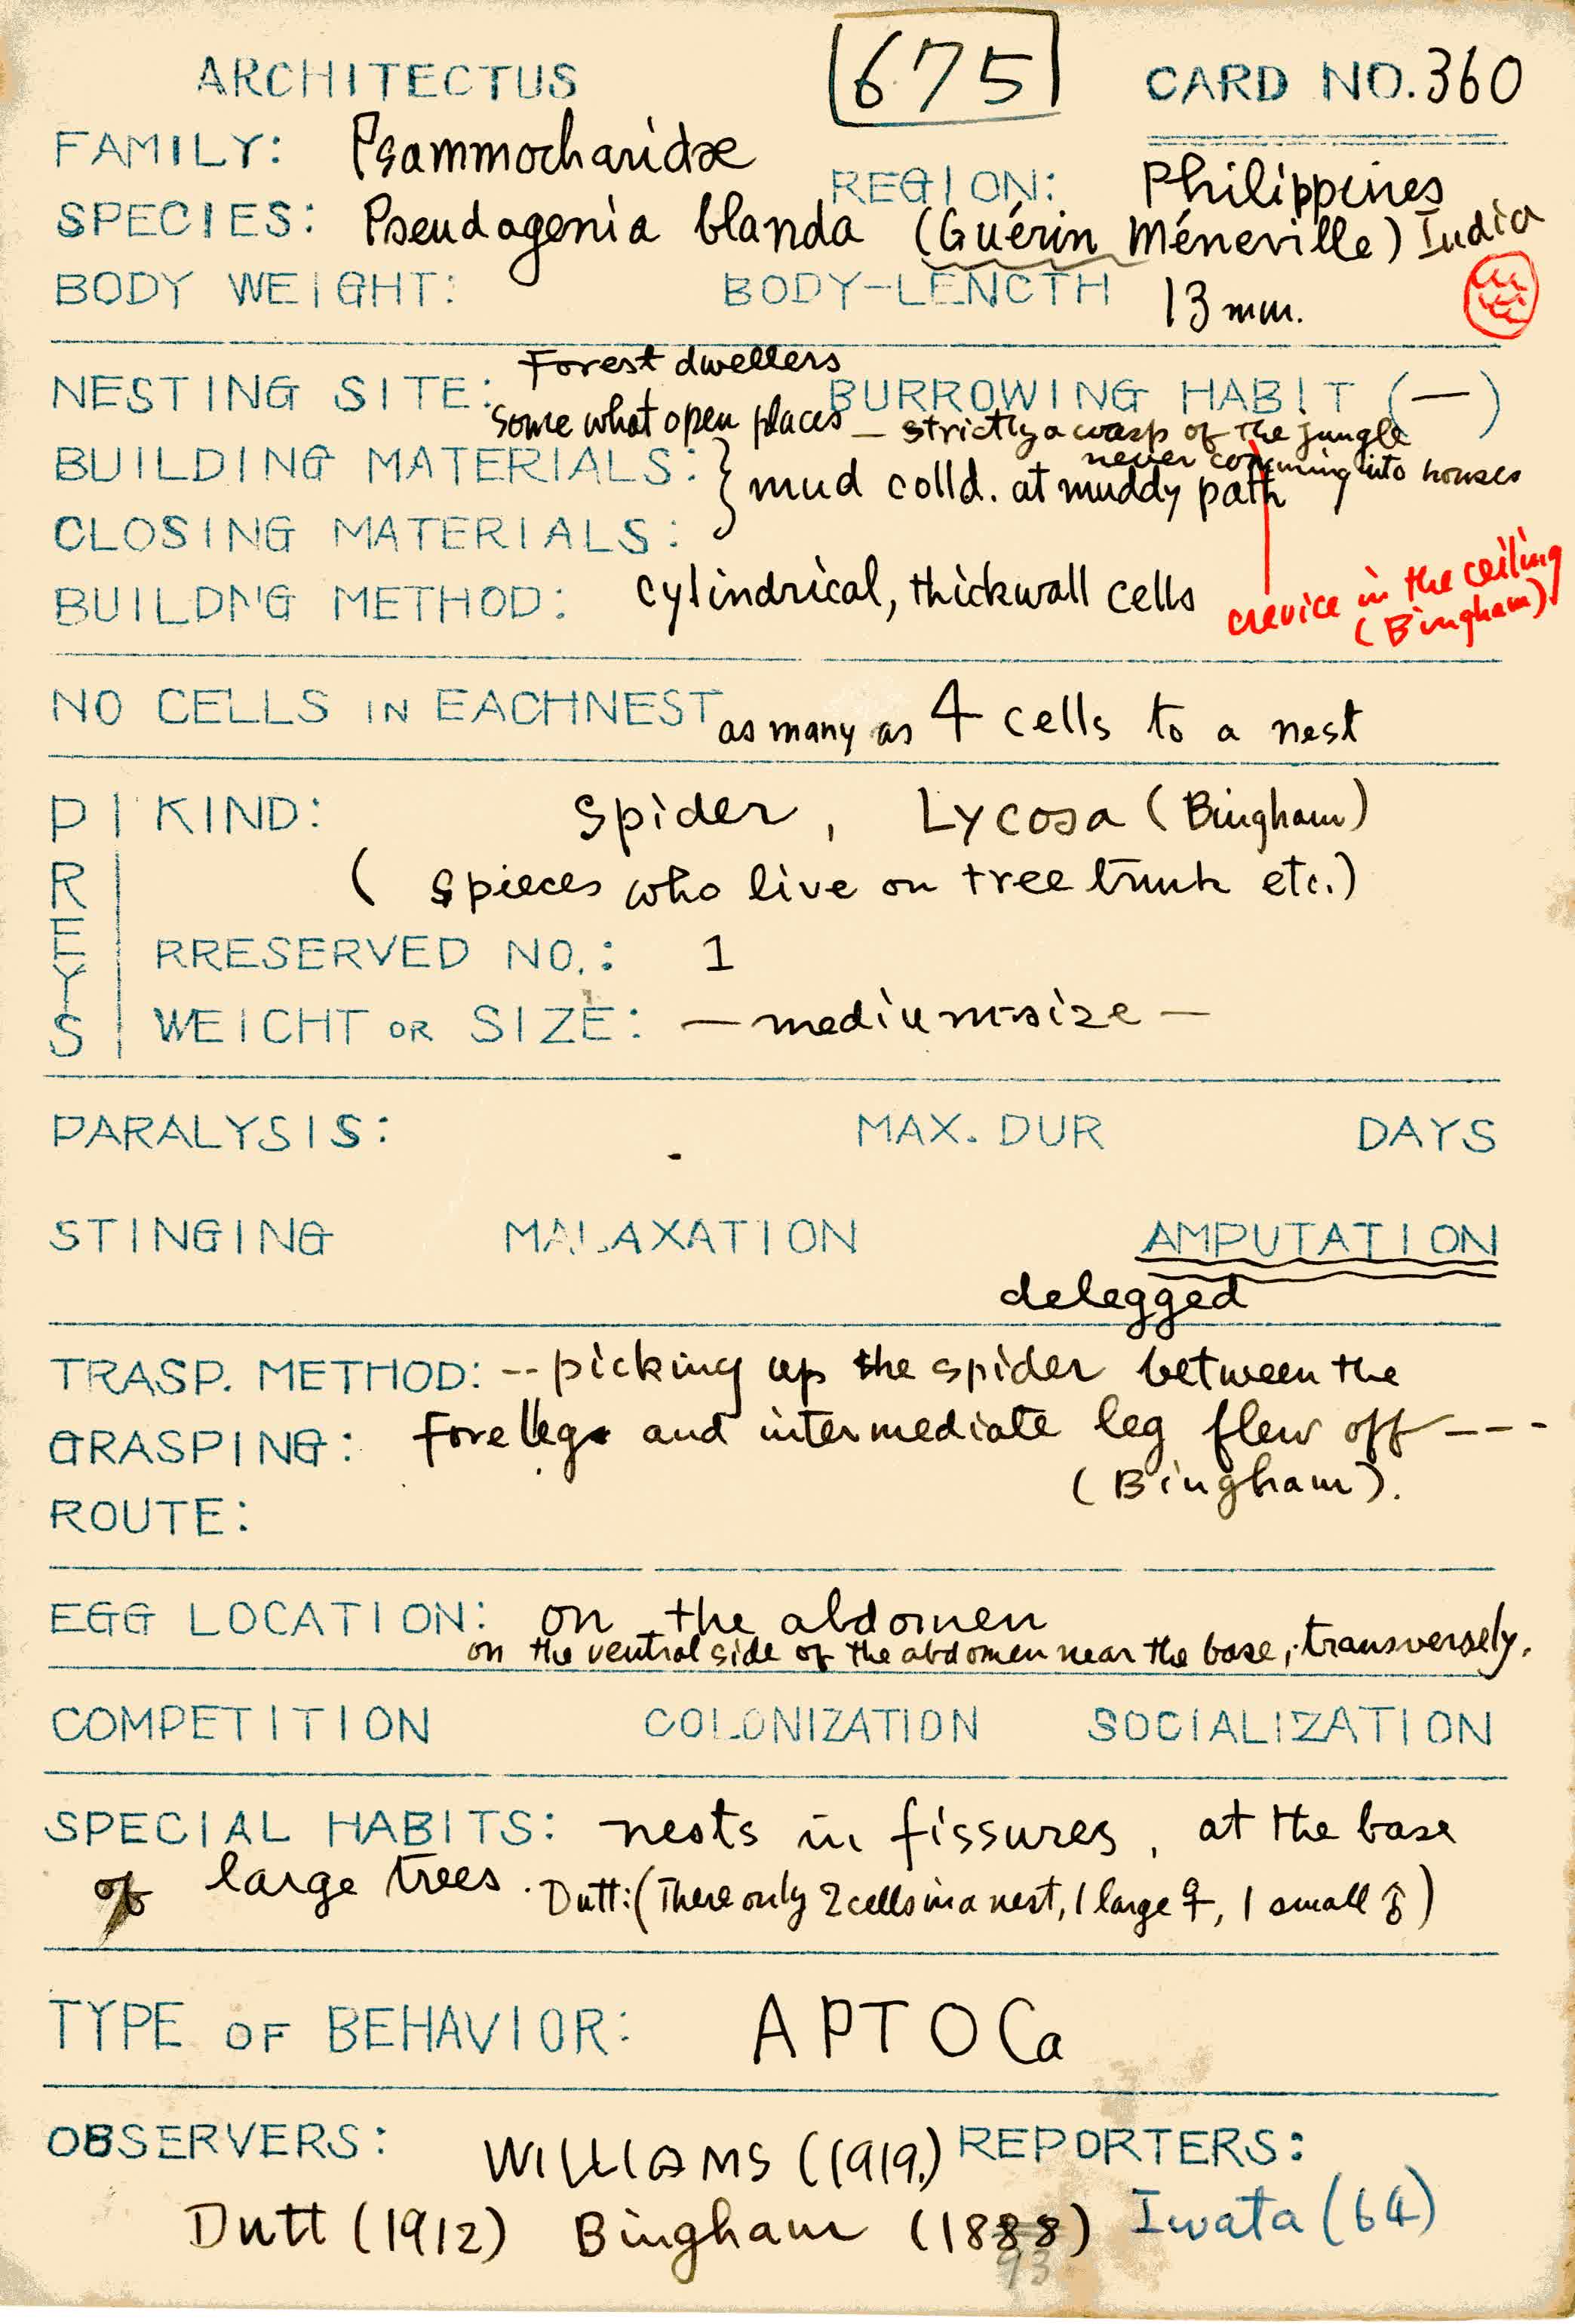 ARCHITECTUS 675 CARD NO. 360
FAMILY: Psammocharidæ
REGION: Philippines
SPECIES: Pseudagenia blanda (Guérin Méneville) India
BODY WEIGHT: BODY-LENGTH 13 mm.
Forest dwellers
NESTING SITE: BURROWING HABIT (—)
Some what open places — strictly a wasp of the jungle
never comming into houses
BUILDING MATERIALS: } mud colld. at muddy path
CLOSING MATERIALS:
crevice in the ceiling
(Bingham)
BUILDNG METHOD: cylindrical, thickwall cells
NO CELLS IN EACHNEST as many as 4 cells to a nest
PREYS
KIND: Spider, Lycosa (Bingham)
(spieces who live on tree trunk etc.)
RRESERVED NO.: 1
WEIGHT OR SIZE: — medium-size —
PARALYSIS: MAX. DUR DAYS
STINGING MALAXATION AMPUTATION
delegged
TRASP. METHOD: -- picking up the spider between the
GRASPING: forelleg and intermediate leg flew off ---
(Bingham).
ROUTE:
EGG LOCATION: on the abdomen
on the ventral side of the abdomen near the base, transversely.
COMPETITION COLONIZATION SOCIALIZATION
SPECIAL HABITS: nests in fissures, at the base
of large trees. Dutt: (There only 2 cells in a nest, 1 large ♀, 1 small ♂)
TYPE OF BEHAVIOR: APTOCa
OBSERVERS: WILLIAMS (1919.) REPORTERS:
Dutt (1912) Bingham (1888) Iwata (64)
93